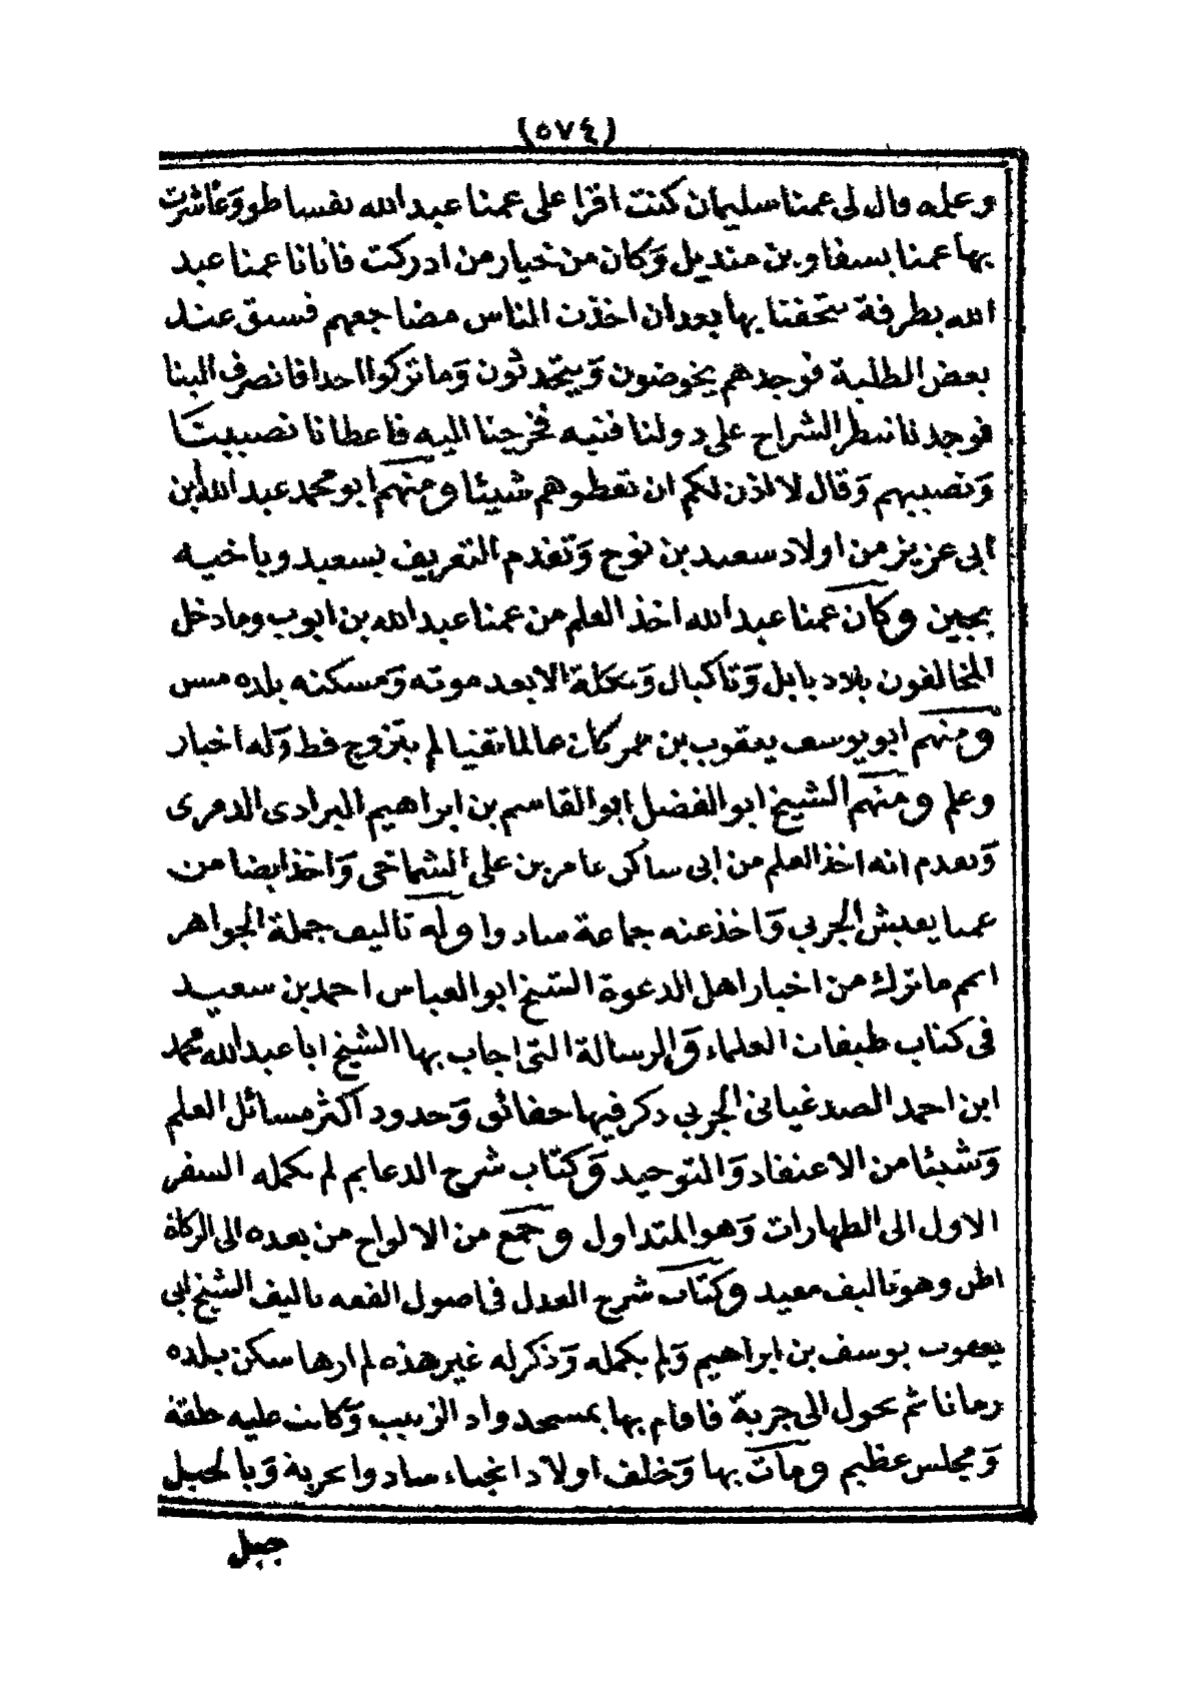 (٥٧٤)
وعمله وقال لى عمنا سليمان كنت اقرا على عمنا عبد الله بفساطو وعاشرت
بها عمنا بسفاو بن منديل وكان من خيار من ادركت فاتانا عمنا عبد
الله بطرفة يتحفنا بها بعد ان اخذت الناس مضاجعهم فسبق عند
بعض الطلبة فوجدهم يخوضون ويتحدثون وما تركوا احدا فانصرف الينا
فوجدنا ننظر الشراح على دولنا فنبه فخرجنا اليه فاعطانا نصيبنا
ونصيبهم وقال لا اذن لكم ان تعطوهم شيئا ومنهم ابو محمد عبد الله ابن
ابى عزيز من اولاد سعيد بن نوح وتقدم التعريف بسعيد وباخيه
يجيبن وكان عمنا عبد الله اخذ العلم من عمنا عبد الله بن ايوب وما دخل
المخالفون بلاد بابل وتاكبال وتكلة الا بعد موته ومسكنه بلده مسس
ومنهم ابو يوسف يعقوب بن عمر كان عالما تقيا لم يتزوج قط وله اخبار
وعلم ومنهم الشيخ ابو الفضل ابو القاسم بن ابراهيم البرادى الدمرى
وتقدم انه اخذ العلم من ابى ساكن عامر بن على الشماخى واخذ ايضا من
عمنا يعيش الجربي واخذ عنه جماعة سادوا وله تاليف جملة الجواهر
اسم ما ترك من اخبار اهل الدعوة الشيخ ابو العباس احمد بن سعيد
فى كتاب طبقات العلماء والرسالة التى اجاب بها الشيخ ابا عبد الله محمد
ابن احمد الصدغيانى الجربي ذكر فيها حقائق وحدود اكثر مسائل العلم
وشيئا من الاعتقاد والتوحيد وكتاب شرح الدعايم لم يكمله السفر
الاول الى الطهارات وهو المتداول وجمع من الالواح من بعده الى الزكاة
اظن وهو تاليف مفيد وكتاب شرح العدل فى اصول الفقه تاليف الشيخ ابى
يعقوب يوسف بن ابراهيم ولم يكمله وذكر له غير هذه لم ارها سكن بلده
زمانا ثم تحول الى جربة فاقام بها بمسجد واد الزبيب وكانت عليه حلقة
ومجلس عظيم ومات بها وخلف اولادا نجباء سادوا بجربة وبالجبل
جبل